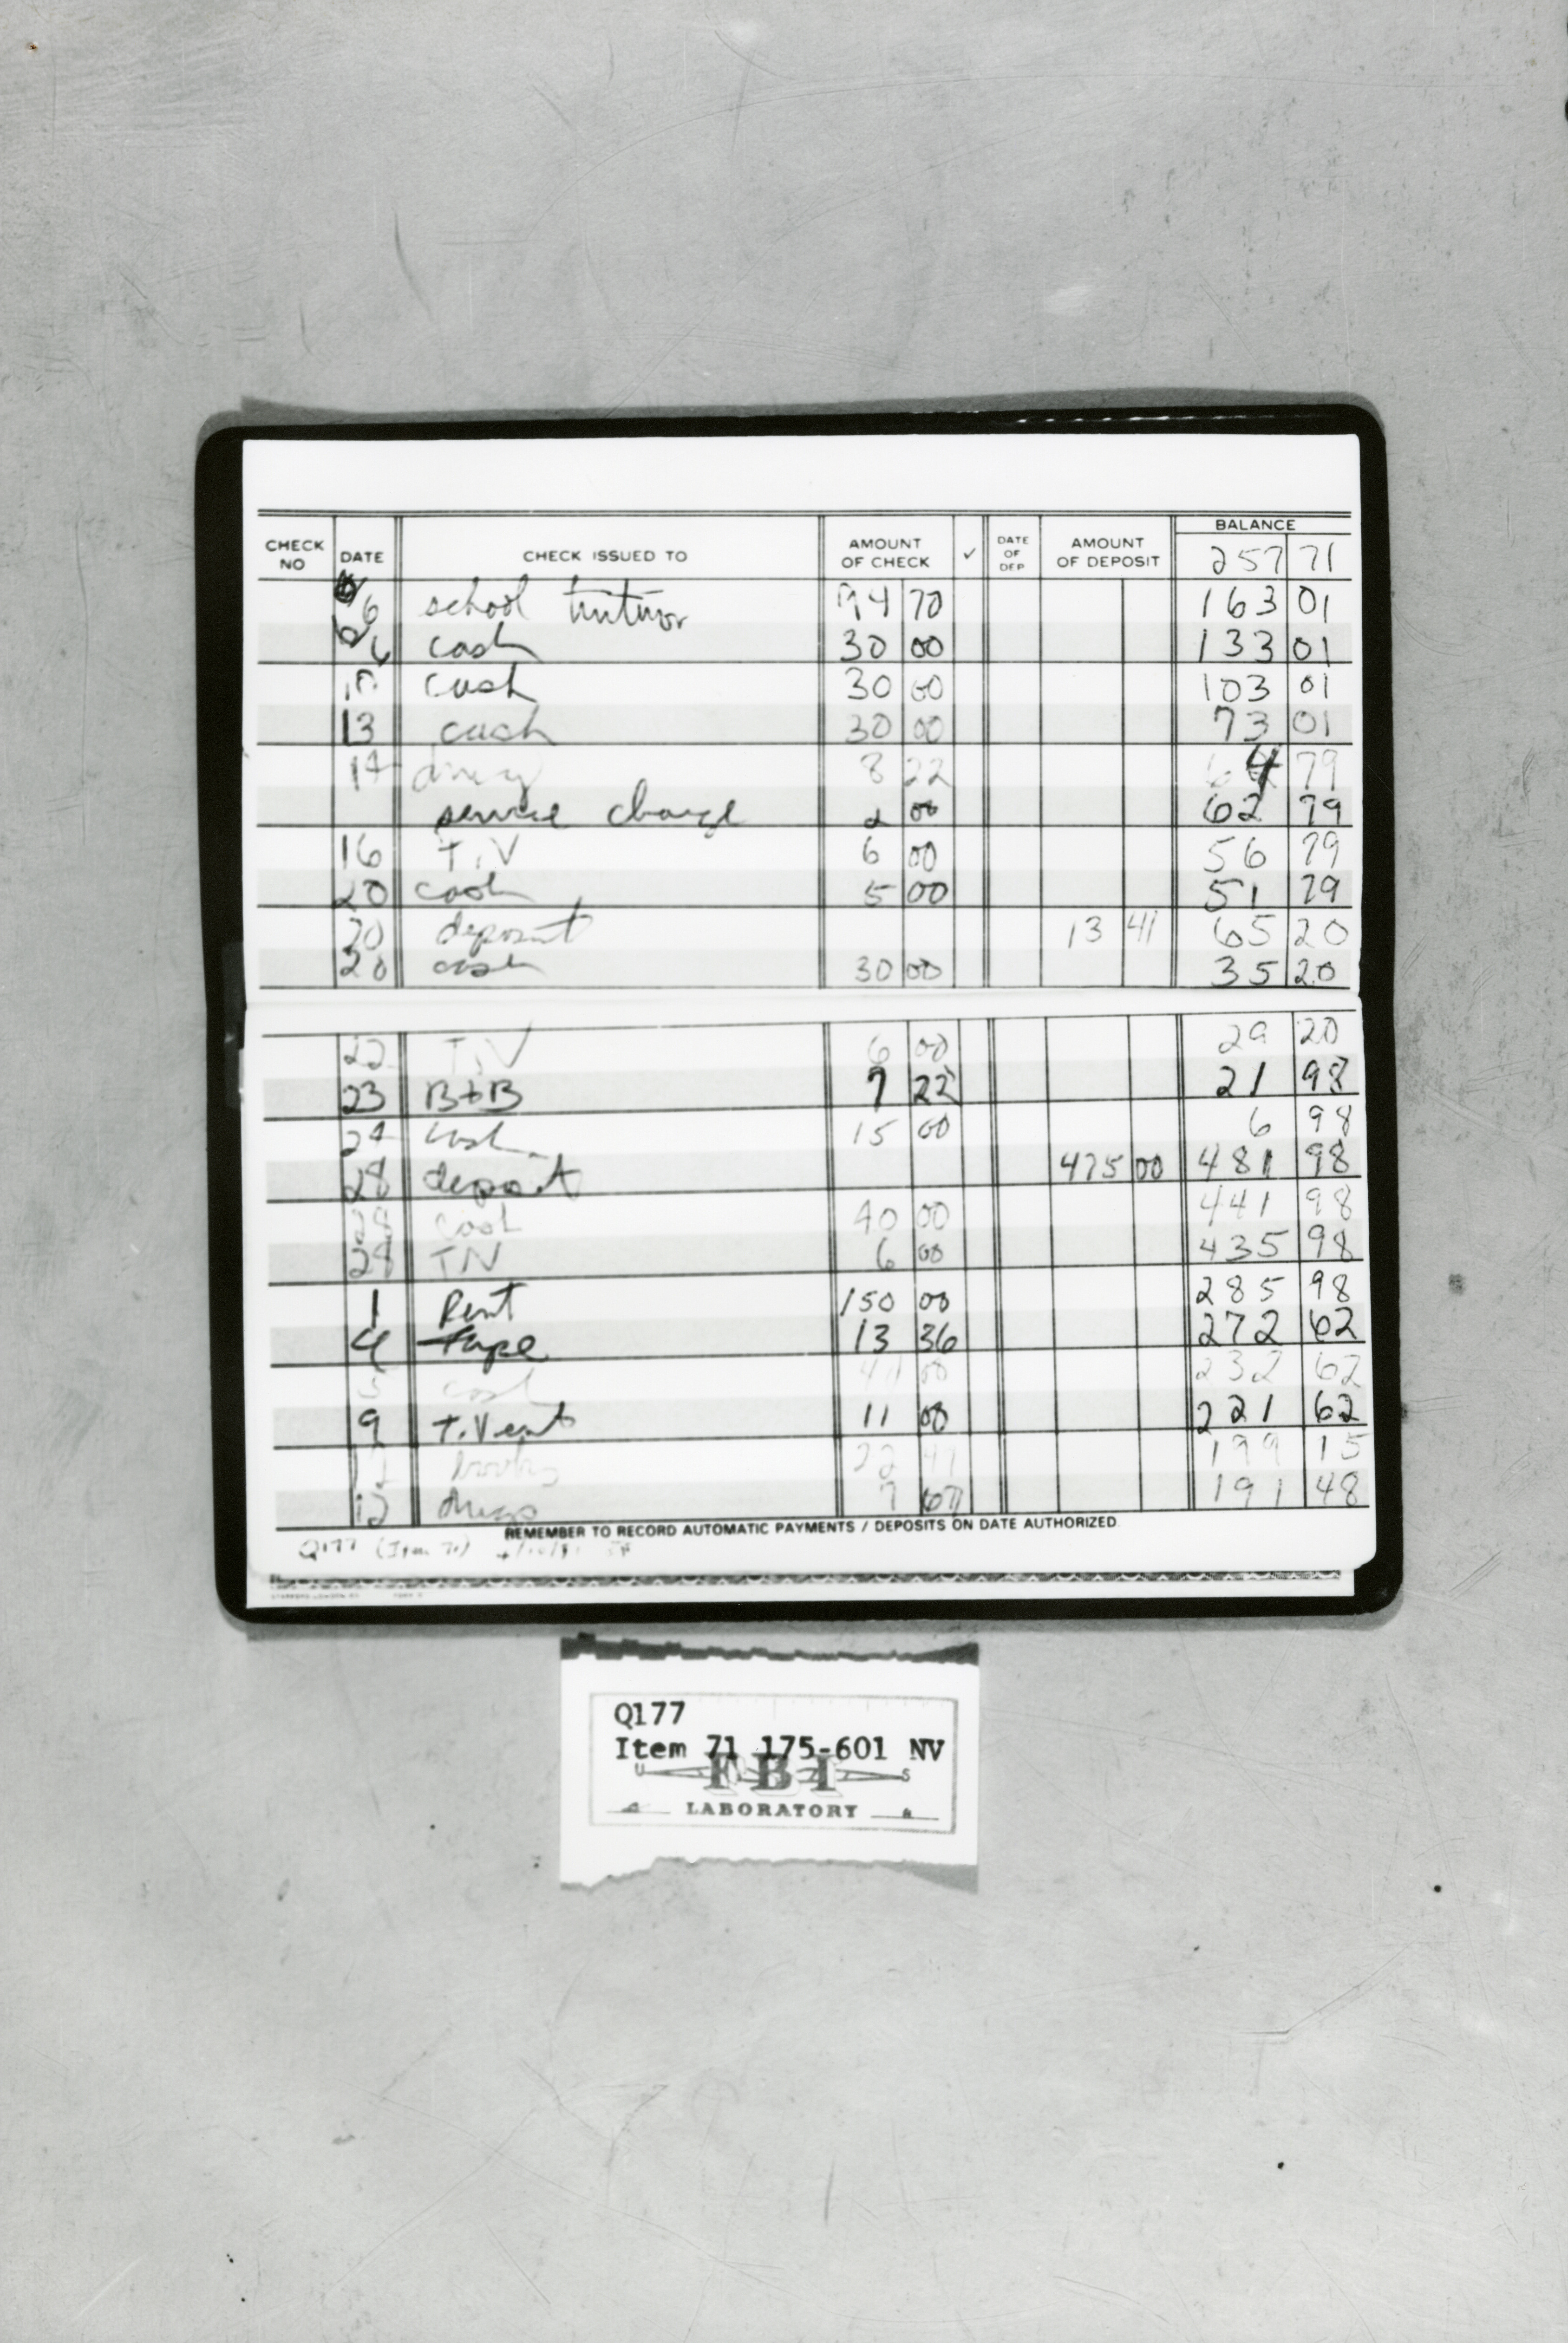 CHECK NO DATE CHECK ISSUED TO AMOUNT OF CHECK ✓ DATE OF DEP AMOUNT OF DEPOSIT BALANCE
257 71
6 school 94 70 163 01
6 cash 30 00 133 01
cash 30 00 103 01
13 cash 30 00 73 01
14 8 22 64 79
service charge 2 00 62 79
16 T.V 6 00 56 79
20 cash 5 00 51 79
20 deposit 13 41 65 20
20 cash 30 00 35 20
22 T.V 6 00 29 20
23 B+B 7 22 21 98
24 cash 15 00 6 98
28 deposit 475 00 481 98
28 cash 40 00 441 98
28 TV 6 00 435 98
1 Rent 150 00 285 98
4 tape 13 36 272 62
cash 00 232 62
9 11 00 221 62
books 22 47 199 15
12 drugs 7 67 191 48
REMEMBER TO RECORD AUTOMATIC PAYMENTS / DEPOSITS ON DATE AUTHORIZED
Q177 (Item 71)
Q177
Item 71 175-601 NV
U FBI S
LABORATORY